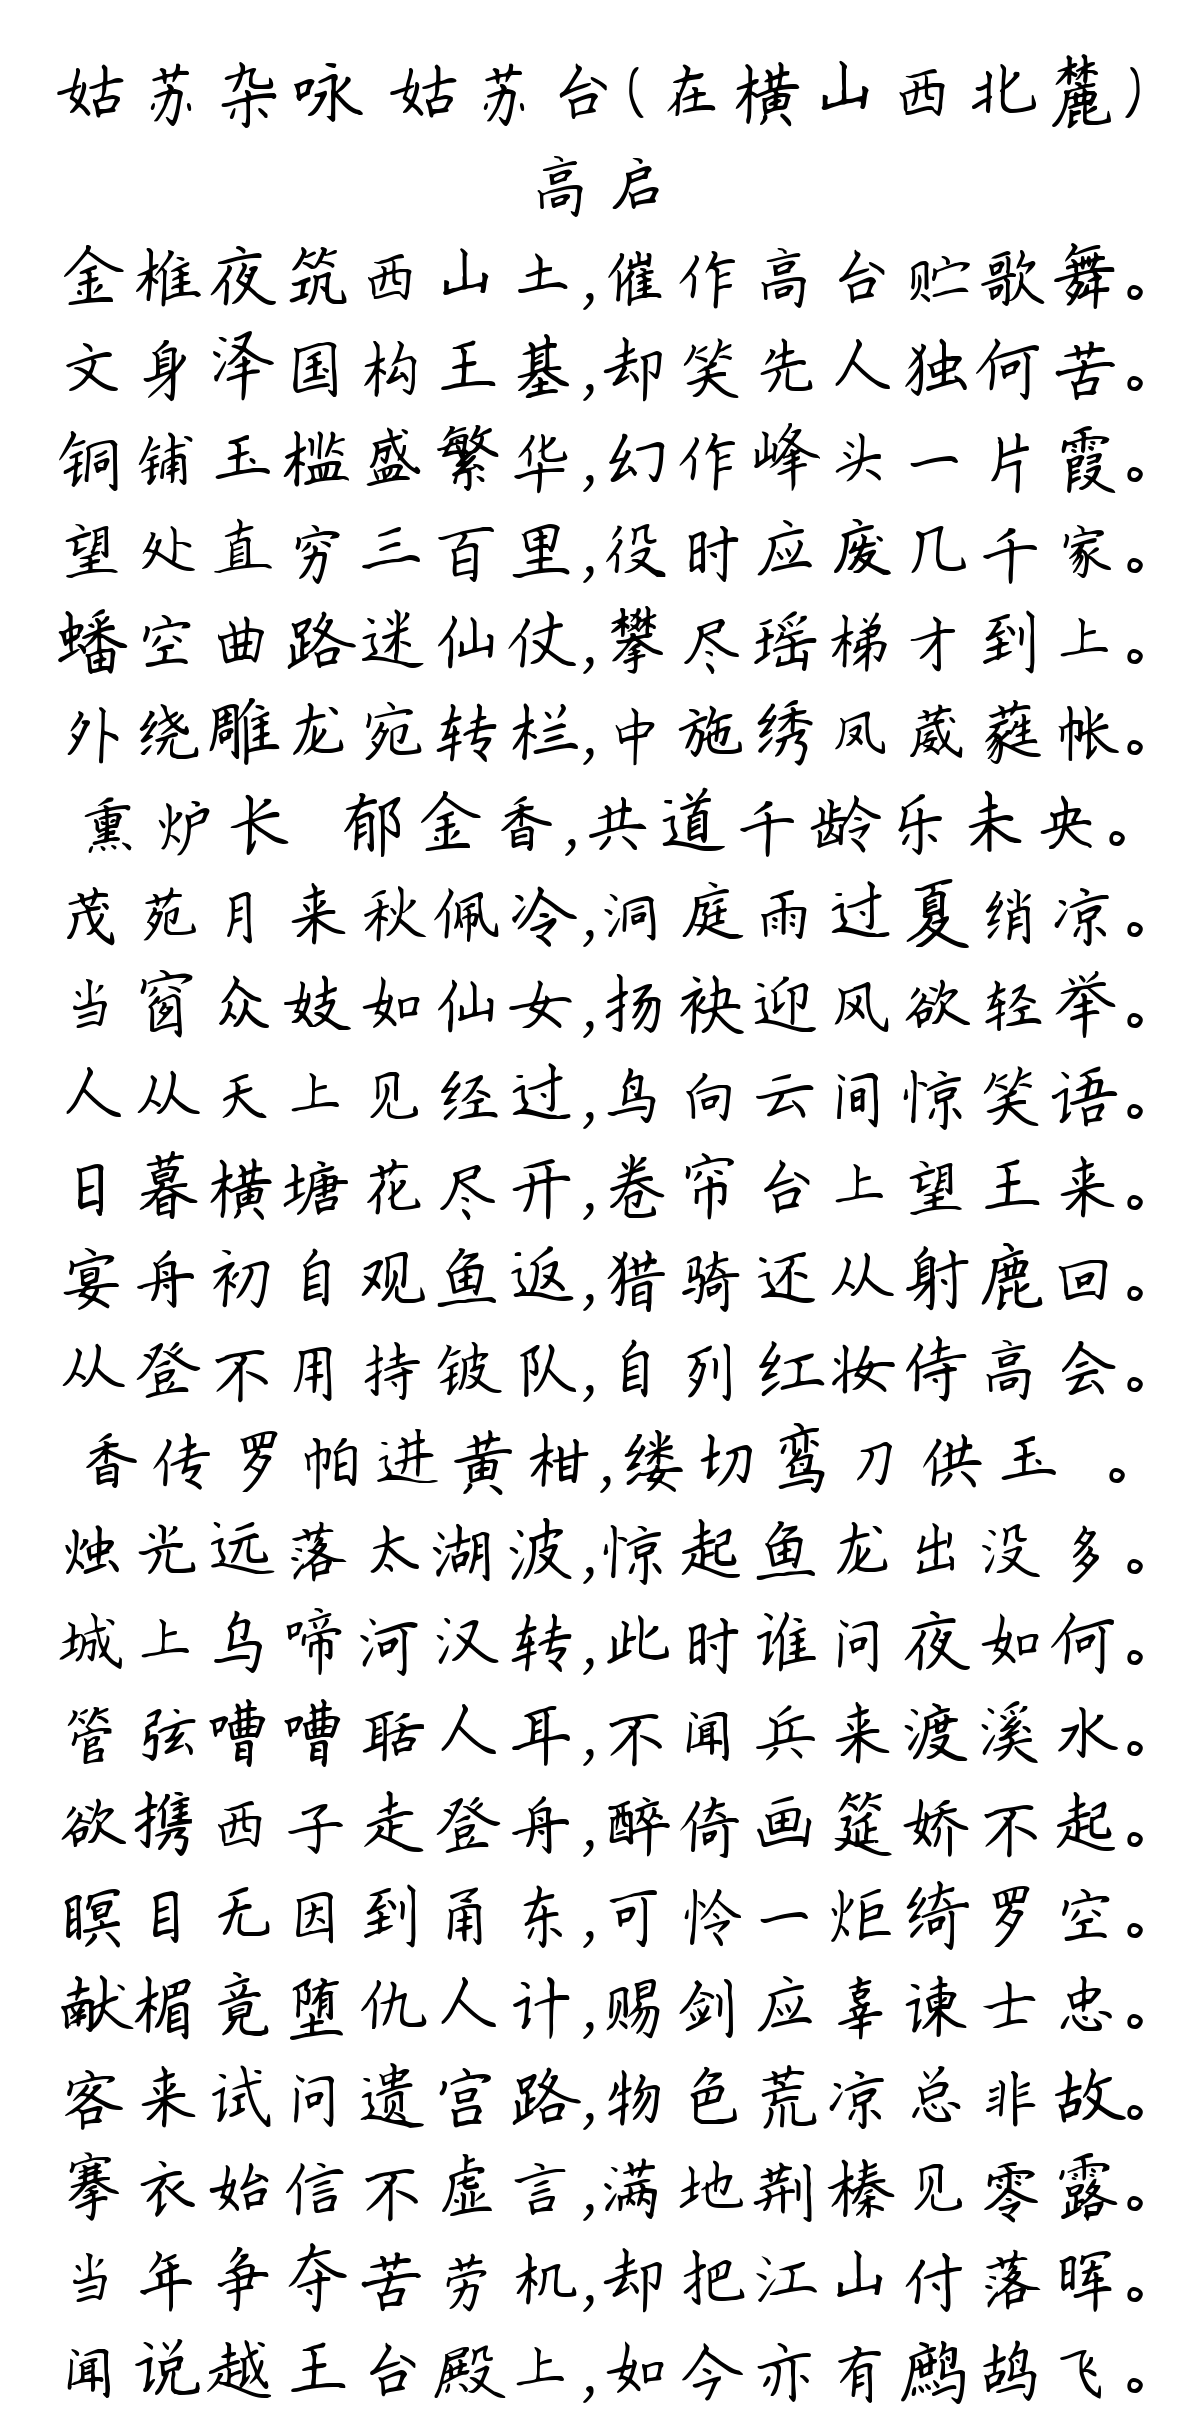 姑苏杂咏 姑苏台(在横山西北麓)
高启
金椎夜筑西山土,催作高台贮歌舞。
文身泽国构王基,却笑先人独何苦。
铜铺玉槛盛繁华,幻作峰头一片霞。
望处直穷三百里,役时应废几千家。
蟠空曲路迷仙仗,攀尽瑶梯才到上。
外绕雕龙宛转栏,中施绣凤葳蕤帐。
熏炉长 郁金香,共道千龄乐未央。
茂苑月来秋佩冷,洞庭雨过夏绡凉。
当窗众妓如仙女,扬袂迎风欲轻举。
人从天上见经过,鸟向云间惊笑语。
日暮横塘花尽开,卷帘台上望王来。
宴舟初自观鱼返,猎骑还从射鹿回。
从登不用持铍队,自列红妆侍高会。
香传罗帕进黄柑,缕切鸾刀供玉 。
烛光远落太湖波,惊起鱼龙出没多。
城上乌啼河汉转,此时谁问夜如何。
管弦嘈嘈聒人耳,不闻兵来渡溪水。
欲携西子走登舟,醉倚画筵娇不起。
瞑目无因到甬东,可怜一炬绮罗空。
献楣竟堕仇人计,赐剑应辜谏士忠。
客来试问遗宫路,物色荒凉总非故。
搴衣始信不虚言,满地荆榛见零露。
当年争夺苦劳机,却把江山付落晖。
闻说越王台殿上,如今亦有鹧鸪飞。